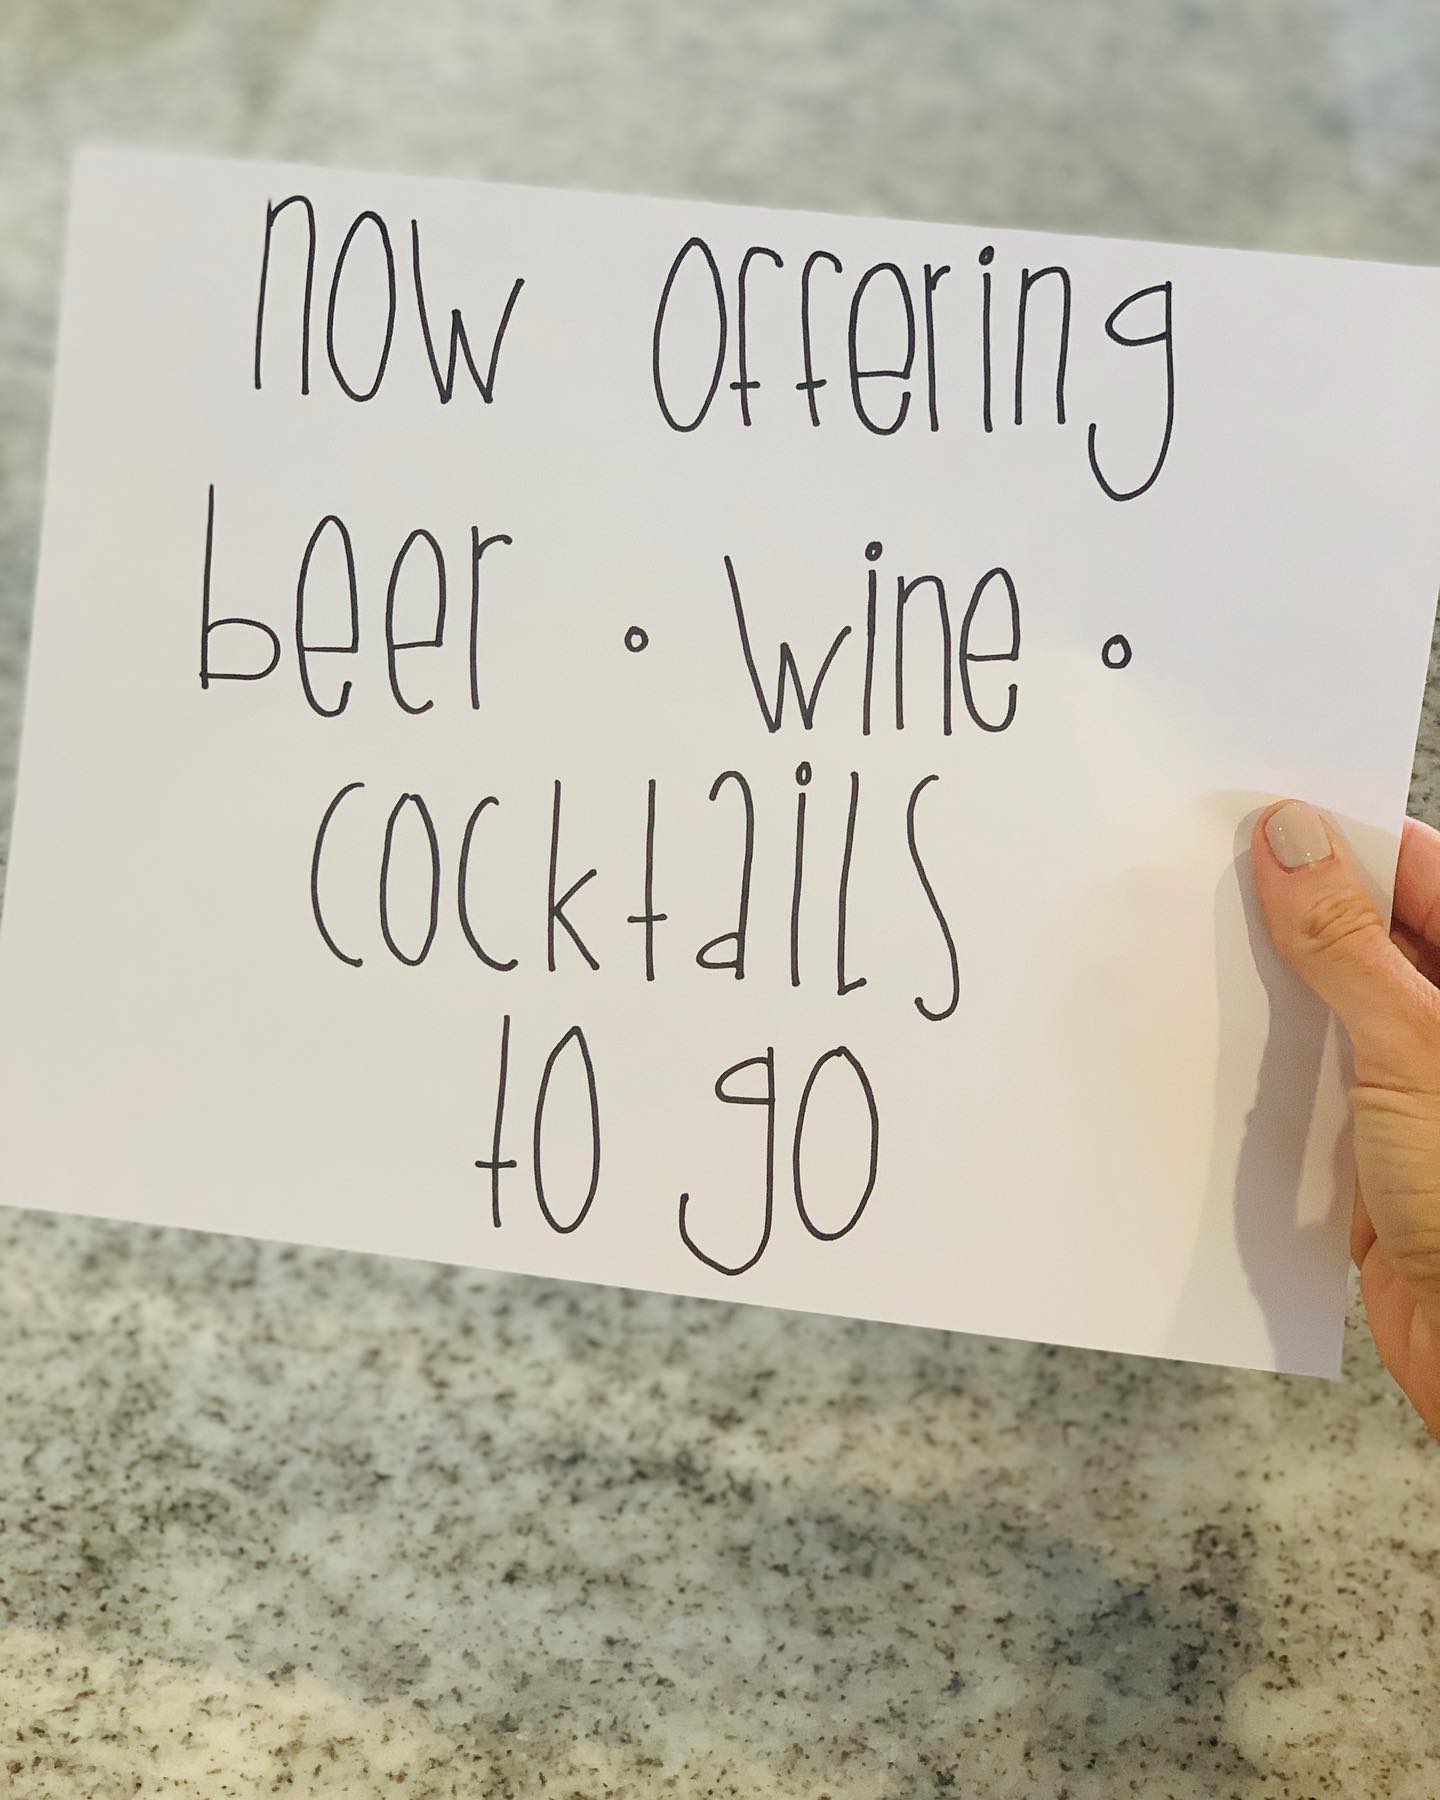 now offering
beer • wine •
cocktails
to go